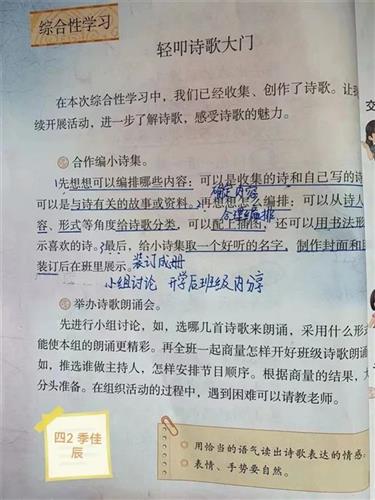 综合性学习
轻叩诗歌大门
在本次综合性学习中，我们已经收集、创作了诗歌。让
续开展活动，进一步了解诗歌，感受诗歌的魅力。
合作编小诗集。
1先想想可以编排哪些内容：可以是收集的诗和自己写的诗
确定内容
可以是与诗有关的故事或资料。2再想想怎么编排：可以从诗人
合理编排
容、形式等角度给诗歌分类，可以配上插图，还可以用书法形
示喜欢的诗。3最后，给小诗集取一个好听的名字，制作封面和目
装订后在班里展示。装订成册
小组讨论 开学后班级内分享
举办诗歌朗诵会。
先进行小组讨论，如，选哪几首诗歌来朗诵，采用什么形
能使本组的朗诵更精彩。再全班一起商量怎样开好班级诗歌朗诵
如，推选谁做主持人，怎样安排节目顺序。根据商量的结果，大
分头准备。在组织活动的过程中，遇到困难可以请教老师。
四2 季佳
辰
用恰当的语气读出诗歌表达的情感
表情、手势要自然。